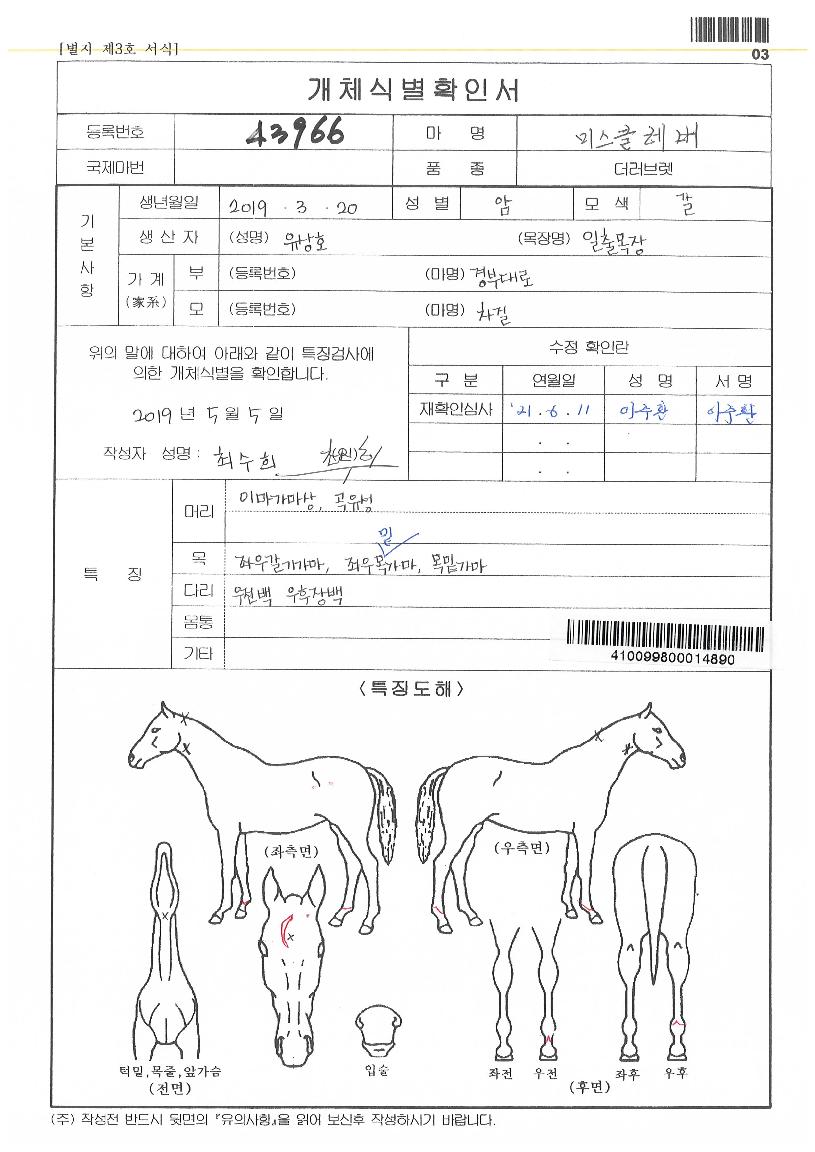 [별지 제3호 서식]
03
개체식별확인서
등록번호 43966 마 명 미스클레버
국제마번 품 종 더러브렛
기본사항
생년월일 2019 . 3 . 20 성 별 암 모 색 갈
생 산 자 (성명) 유상호 (목장명) 일출목장
가 계 (家系)
부 (등록번호) (마명) 경부대로
모 (등록번호) (마명) 차길
위의 말에 대하여 아래와 같이 특징검사에
의한 개체식별을 확인합니다.
2019 년 5 월 5 일
작성자 성명 : 최수희
수정 확인란
구 분 연월일 성 명 서 명
재확인심사 '21 . 6 . 11 이주환 이주환
. .
. .
특 징
머리 이마가마상, 곡유성
밑
목 좌우갈기가마, 좌우목가마, 목밑가마
다리 우전백 우후장백
몸통
기타
410099800014890
<특징도해>
(좌측면) (우측면)
턱밑,목줄,앞가슴
(전면)
입술
좌전 우전 좌후 우후
(후면)
(주) 작성전 반드시 뒷면의 『유의사항』을 읽어 보신후 작성하시기 바랍니다.